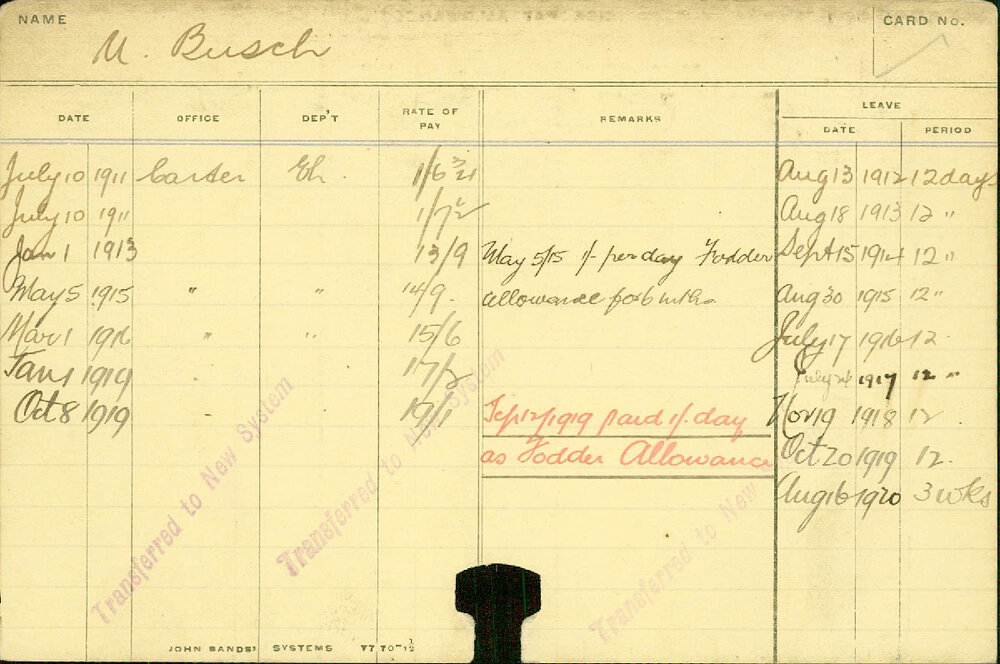 NAME CARD No.
M. Busch
DATE OFFICE DEP'T RATE OF PAY REMARKS LEAVE
DATE PERIOD
July 10 1911 Carter Eh. 1/6 Aug 13 1912 12 days
July 10 1911 1/7½ Aug 18 1913 12 "
Jan 1 1913 13/9 May 5/15 1/- per day Fodder Sept 15 1914 12 "
May 5 1915 " " 14/9. allowance for 6 mths. Aug 30 1915 12 "
Mar 1 1916 " " 15/6 July 17 1916 12
Jan 1 1919 17/2 July 1917 12 "
Oct 8 1919 19/1 Sep 12/1919 paid 1/- day Nov 19 1918 12
as Fodder Allowance Oct 20 1919 12.
Aug 16 1920 3 wks
Transferred to New System
Transferred to New System
Transferred to New
JOHN SANDS' SYSTEMS